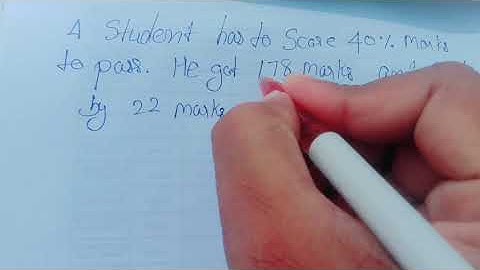 A Student has to Score 40% marks
to pass. He got 178 marks and
by 22 marks